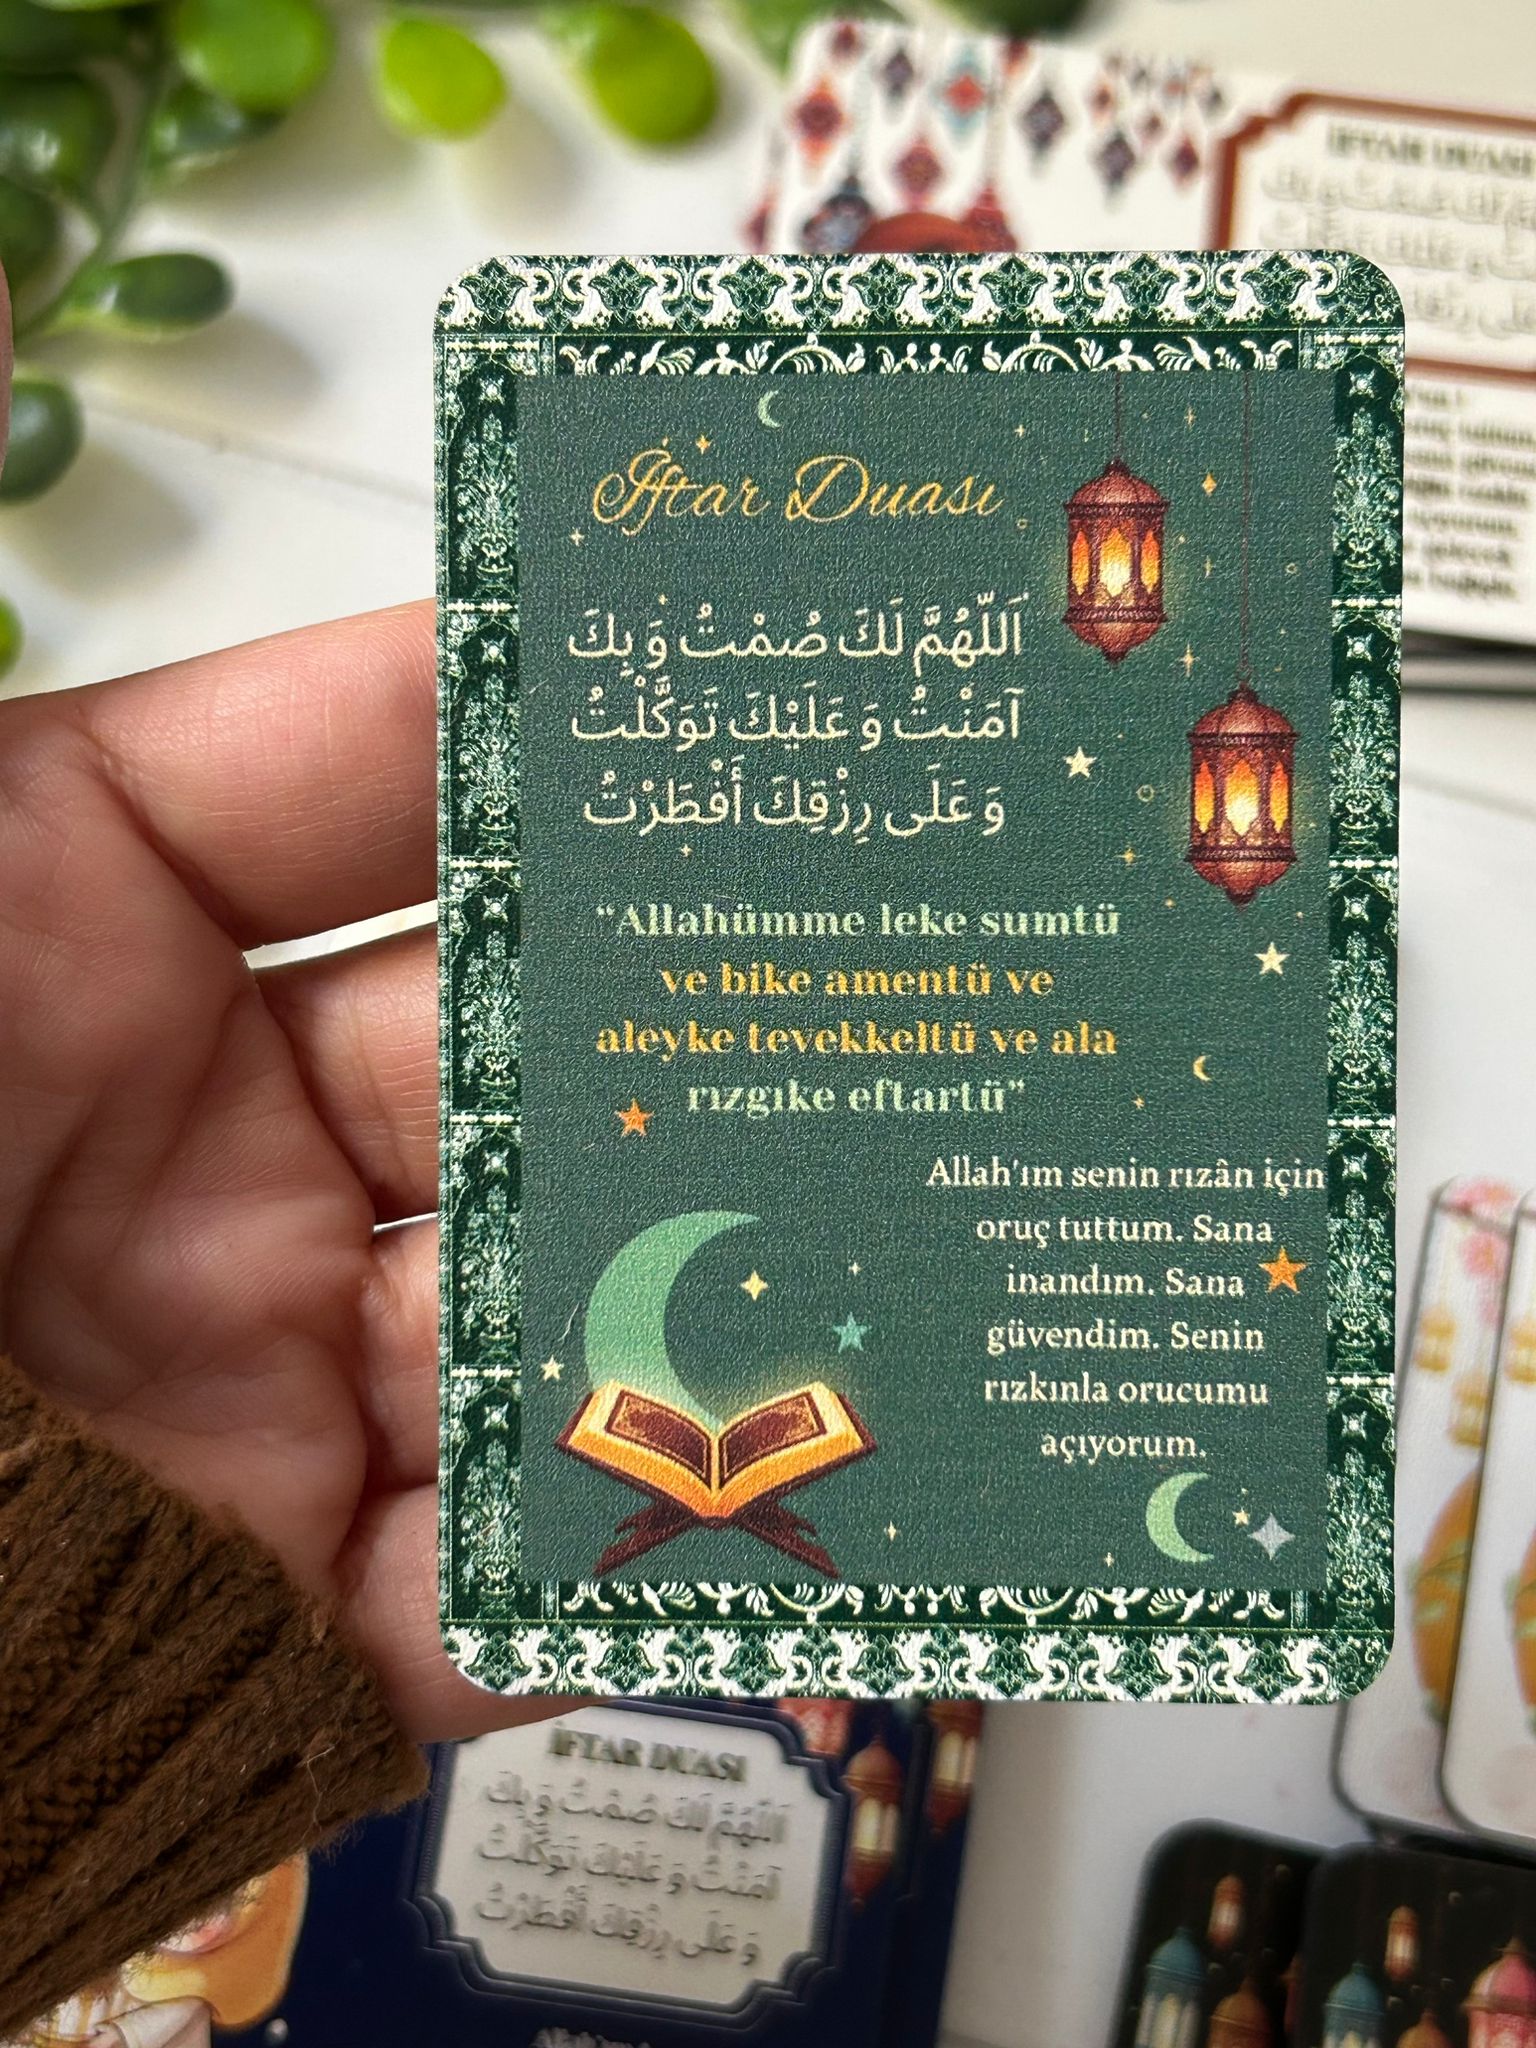 İftar Duası
اَللّهُمَّ لَكَ صُمْتُ وَ بِكَ
آمَنْتُ وَ عَلَيْكَ تَوَكَّلْتُ
وَ عَلَى رِزْقِكَ أَفْطَرْتُ
“Allahümme leke sumtü
ve bike amentü ve
aleyke tevekkeltü ve ala
rızgıke eftartü”
Allah'ım senin rızân için
oruç tuttum. Sana
inandım. Sana
güvendim. Senin
rızkınla orucumu
açıyorum.
İFTAR DUASI
اَللّهُمَّ لَكَ صُمْتُ وَ بِكَ
آمَنْتُ وَ عَلَيْكَ تَوَكَّلْتُ
وَ عَلَى رِزْقِكَ أَفْطَرْتُ
İFTAR DUASI